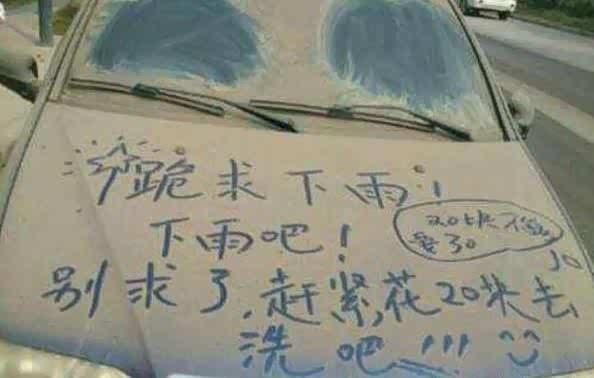 跪求下雨！
下雨吧！
20块不够
要30
别求了，赶紧花20块去
洗吧！！！